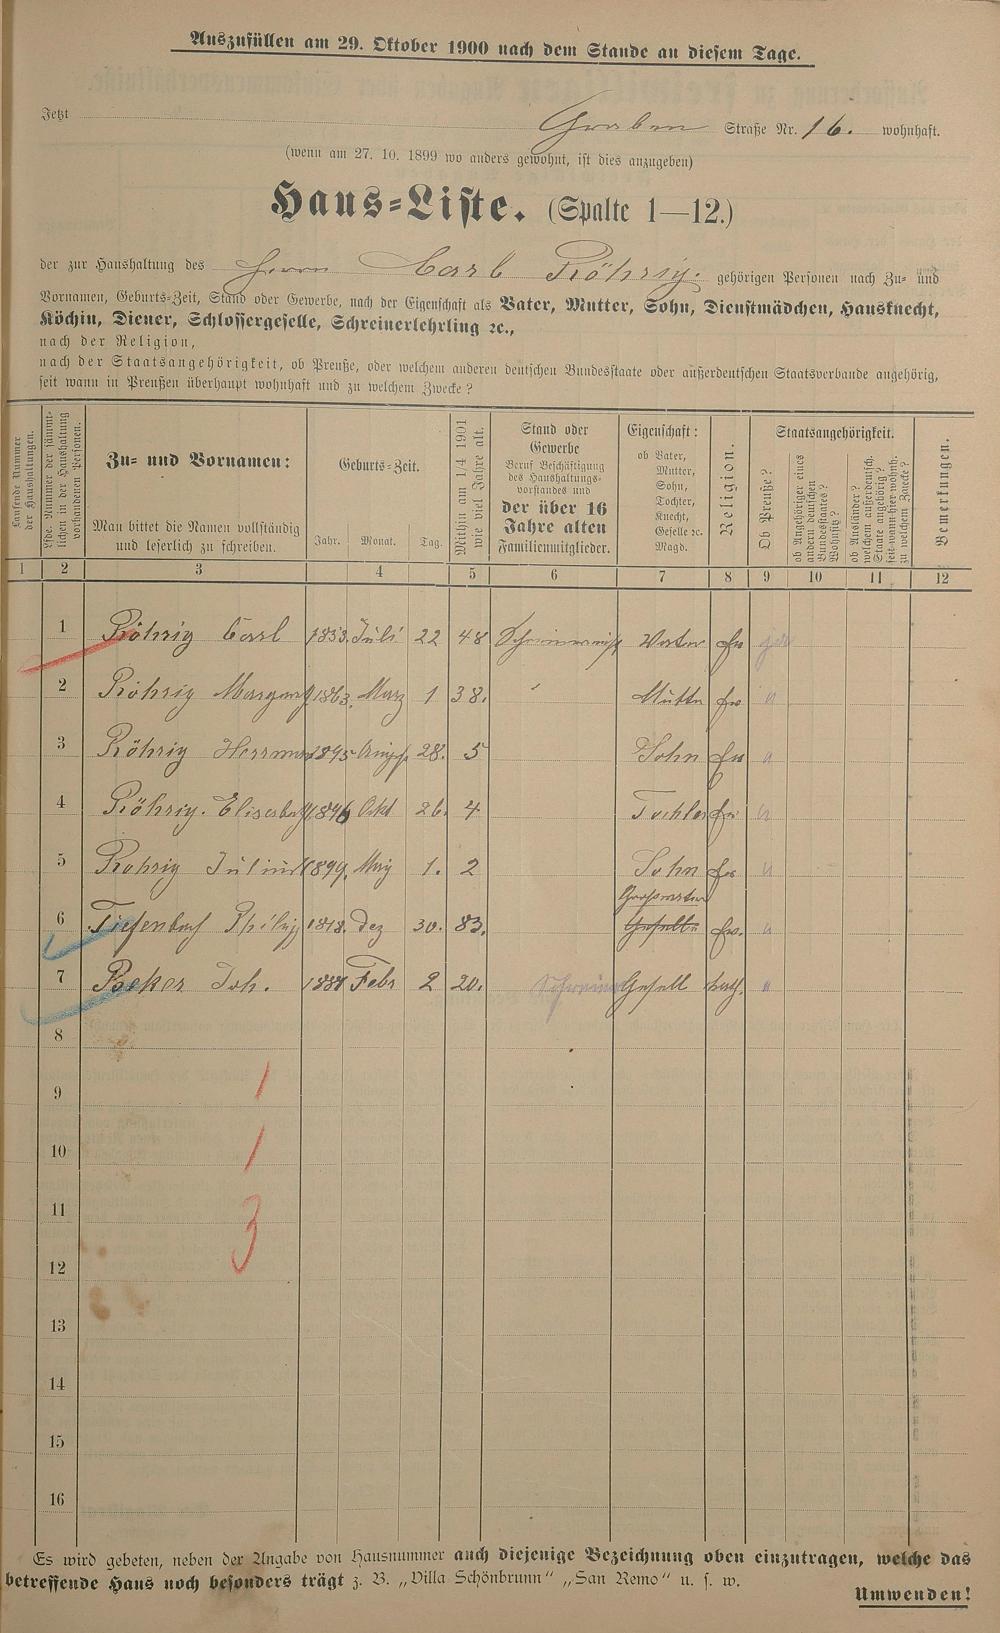 Auszufüllen am 29. Oktober 1900 nach dem Stande an diesem Tage.
Jetzt Graben Straße Nr. 16. wohnhaft.
(wenn am 27. 10. 1899 wo anders gewohnt, ist dies anzugeben)
Haus-Liste. (Spalte 1—12.)
der zur Haushaltung des Herrn Carl Röhrig. gehörigen Personen nach Zu- und
Vornamen, Geburts-Zeit, Stand oder Gewerbe, nach der Eigenschaft als Vater, Mutter, Sohn, Dienstmädchen, Hausknecht,
Köchin, Diener, Schlossergeselle, Schreinerlehrling ꝛc.,
nach der Religion,
nach der Staatsangehörigkeit, ob Preuße, oder welchem anderen deutschen Bundesstaate oder außerdeutschen Staatsverbande angehörig,
seit wann in Preußen überhaupt wohnhaft und zu welchem Zwecke?
Laufende Nummer der Haushaltungen.
Lfde. Nummer der sämmtlichen in der Haushaltung vorhandenen Personen.
Zu- und Vornamen:
Man bittet die Namen vollständig
und leserlich zu schreiben.
Geburts-Zeit.
Jahr. Monat. Tag.
Mithin am 1/4 1901 wie viel Jahre alt.
Stand oder
Gewerbe
Beruf Beschäftigung
des Haushaltungs-
vorstandes und
der über 16
Jahre alten
Familienmitglieder.
Eigenschaft:
ob Vater,
Mutter,
Sohn,
Tochter,
Knecht,
Geselle ꝛc.
Magd.
Religion.
Staatsangehörigkeit.
Ob Preuße?
ob Angehöriger eines andern deutschen Bundesstaates? Wohnsitz?
ob Ausländer? welchem außerdeutsch. Staate angehörig? seit wann hier wohnh. zu welchem Zwecke?
Bemerkungen.
1 2 3 4 5 6 7 8 9 10 11 12
1 Röhrig Carl 1853. Juli 22 48 Vater Ev ja
2 Röhrig 1863. März 1 38. " Mutter Ev "
3 Röhrig Herrmann 1895 August 28. 5 Sohn Ev "
4 Röhrig. Elisabeth 1896 Okt 26. 4 Tochter Ev "
5 Röhrig 1899. May 1. 2 Sohn Ev "
6 Tiefenbach Philipp 1818. Dez 30. 83. Großvater Geselle Ev. "
7 Beker Joh. Febr 2 20. Schreiner Gesell kath. "
8
9 1
10 1
11 3
12
13
14
15
16
Es wird gebeten, neben der Angabe von Hausnummer auch diejenige Bezeichnung oben einzutragen, welche das
betreffende Haus noch besonders trägt z. B. „Villa Schönbrunn" „San Remo" u. s. w.
Umwenden!